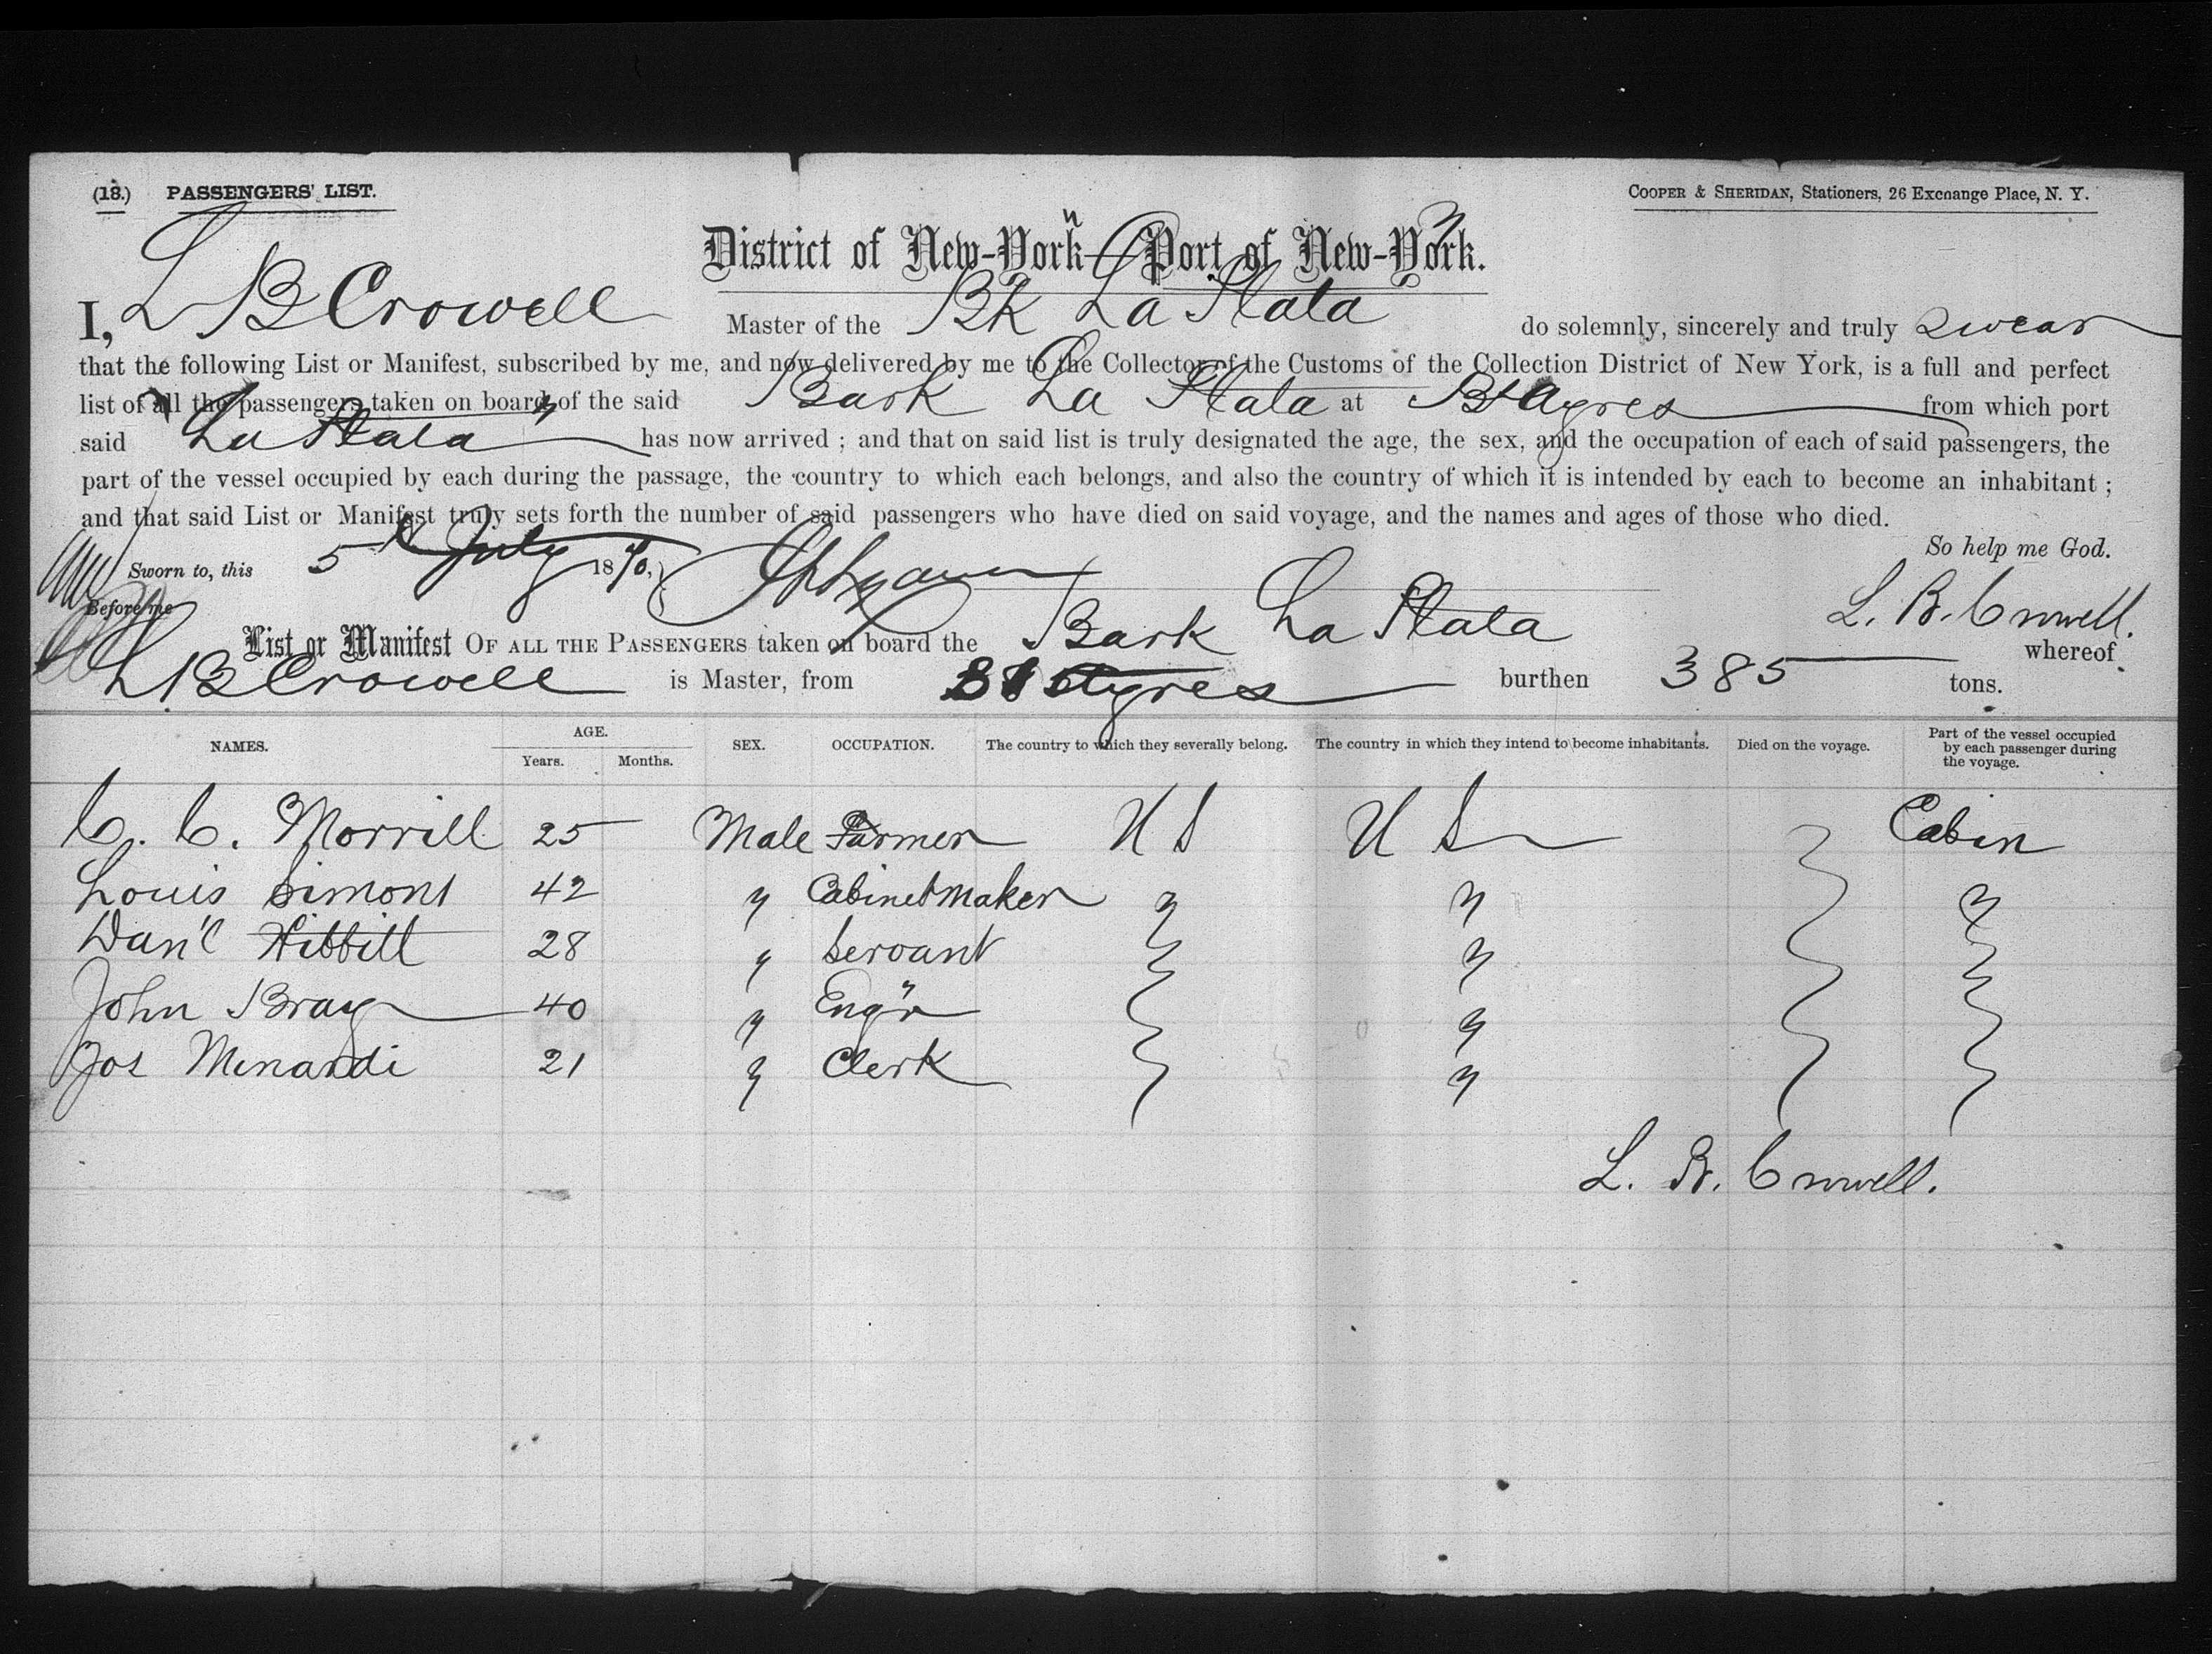 (18.) PASSENGERS' LIST.
COOPER & SHERIDAN, Stationers, 26 Exchange Place, N. Y.
District of New-York—Port of New-York.
I, L B Crowell Master of the Bk "La Plata" do solemnly, sincerely and truly swear
that the following List or Manifest, subscribed by me, and now delivered by me to the Collector of the Customs of the Collection District of New York, is a full and perfect
list of all the passengers taken on board of the said Bark La Plata at Bs Ayres from which port
said "La Plata" has now arrived ; and that on said list is truly designated the age, the sex, and the occupation of each of said passengers, the
part of the vessel occupied by each during the passage, the country to which each belongs, and also the country of which it is intended by each to become an inhabitant ;
and that said List or Manifest truly sets forth the number of said passengers who have died on said voyage, and the names and ages of those who died.
So help me God.
Sworn to, this 5th July 1870,
Before me
L. B. Crowell.
List or Manifest OF ALL THE PASSENGERS taken on board the Bark La Plata whereof
L B Crowell is Master, from Bs Ayres burthen 385 tons.
NAMES. AGE. Years. Months. SEX. OCCUPATION. The country to which they severally belong. The country in which they intend to become inhabitants. Died on the voyage. Part of the vessel occupied by each passenger during the voyage.
C. C. Morrill 25 Male Farmer U S U S Cabin
Louis Simons 42 " Cabinetmaker " " "
Dan'l Hibbitt 28 " Servant " "
John Bray 40 " Eng'r "
Jos Menardi 21 " Clerk "
L. B. Crowell.